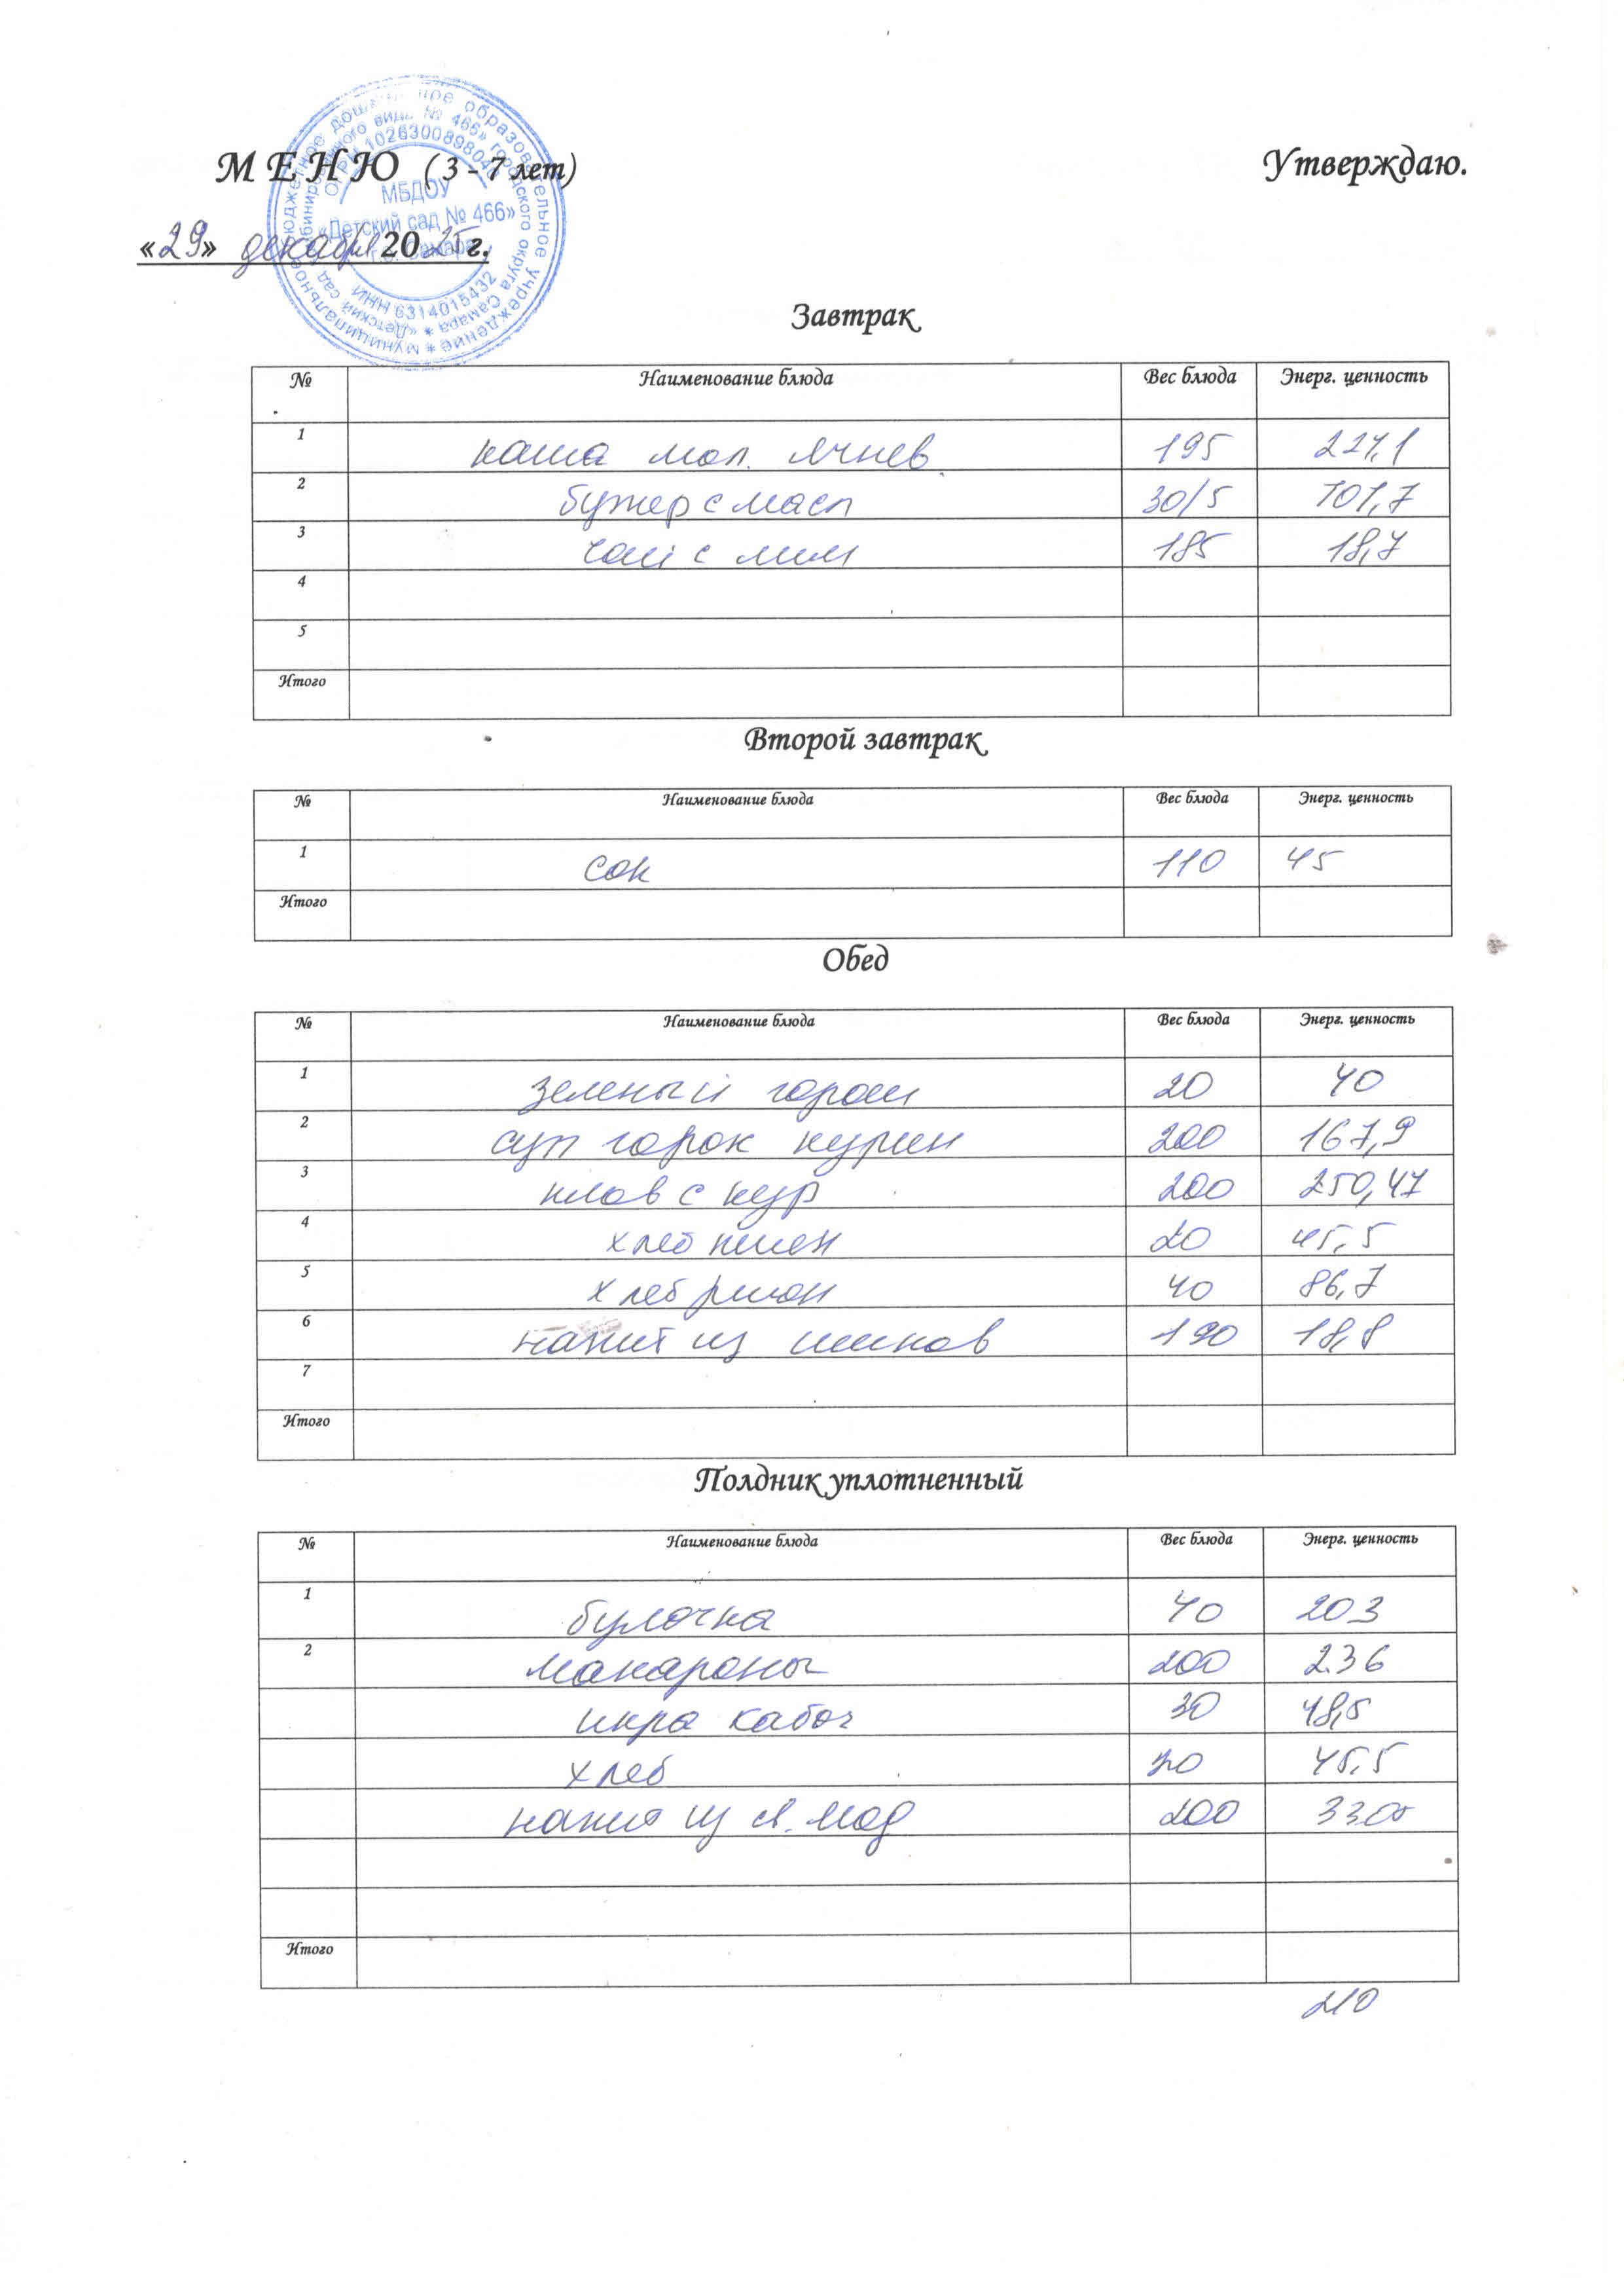 М Е Н Ю ( 3 - 7 лет)
Утверждаю.
«29» декабря 2025 г.
МБДОУ
«Детский сад № 466»
г.о. Самара
ИНН 6314015432
Завтрак
№ Наименование блюда Вес блюда Энерг. ценность
1 каша мол. ячнев 195 227,1
2 бутер с масл 30/5 101,7
3 чай с лим 185 18,7
4
5
Итого
Второй завтрак
№ Наименование блюда Вес блюда Энерг. ценность
1 сок 110 45
Итого
Обед
№ Наименование блюда Вес блюда Энерг. ценность
1 зеленый горош 20 40
2 суп горок курин 200 167,9
3 плов с кур 200 250,47
4 хлеб пшен 20 45,5
5 хлеб ржан 40 86,7
6 напит из шипов 190 18,8
7
Итого
Полдник уплотненный
№ Наименование блюда Вес блюда Энерг. ценность
1 булочка 40 203
2 макароны 200 236
икра кабач 30 48,5
хлеб 20 45,5
напит из яг 200
Итого
210